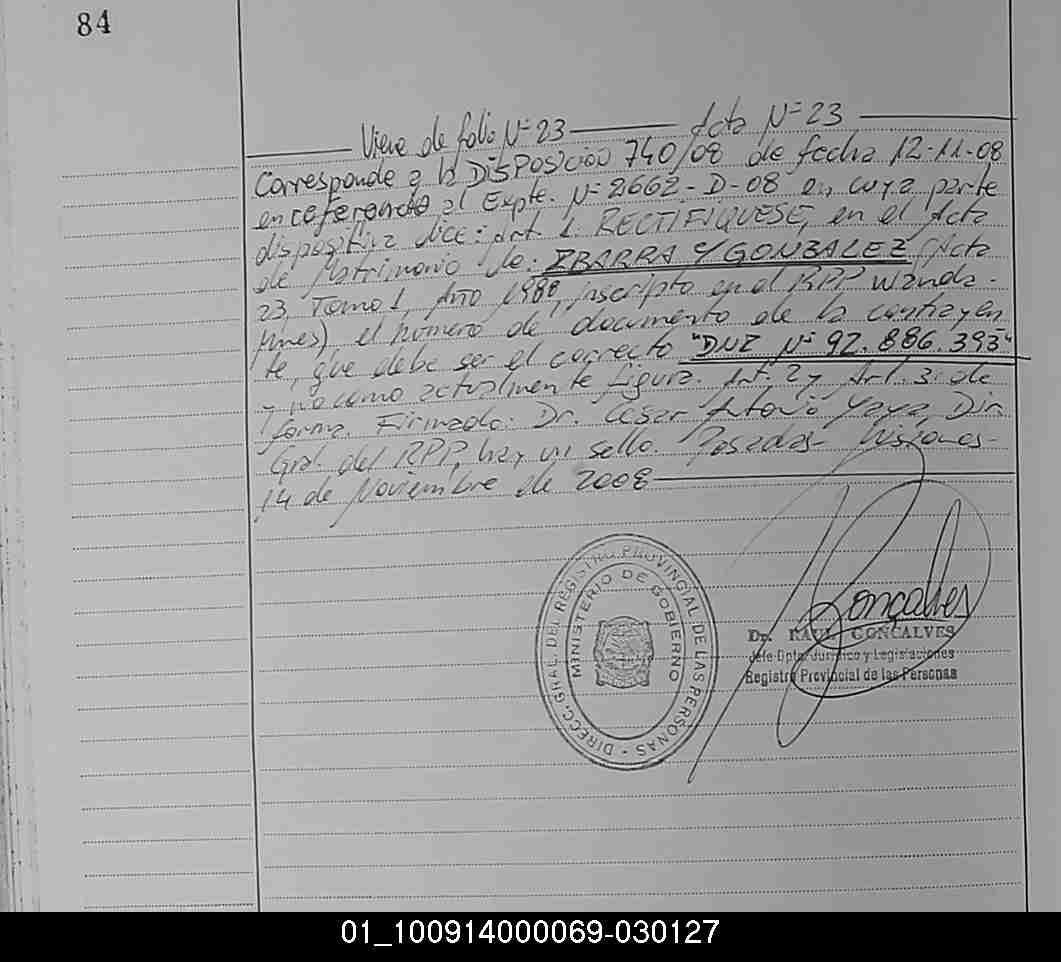 84
Viene de folio Nº 23 Acta Nº 23
Corresponde a la DISPOSICIÓN 740/08 de fecha 12-11-08
en referencia al Expte. Nº 2662-D-08 en cuya parte
dispositiva dice: Art 1. RECTIFIQUESE, en el Acta
de Matrimonio de: IBARRA Y GONZALEZ (Acta
23, Tomo 1, Año 1988, inscripto en el RPP Wanda-
Mnes) el número de documento de la contrayen
te, que debe ser el correcto "DNI Nº 92.886.393"
y no como actualmente figura. Art. 2 y Art. 3: de
forma. Firmado: Dr. Cesar Antonio Yaya, Dir.
Gral. del RPP, hay un sello. Posadas - Misiones -
14 de Noviembre de 2008
DIRECC. GRAL. DEL REGISTRO PROVINCIAL DE LAS PERSONAS -
MINISTERIO DE GOBIERNO
Gonçalves
Dr. RAUL GONCALVES
Jefe Dpto. Jurídico y Legislaciones
Registro Provincial de las Personas
01_100914000069-030127